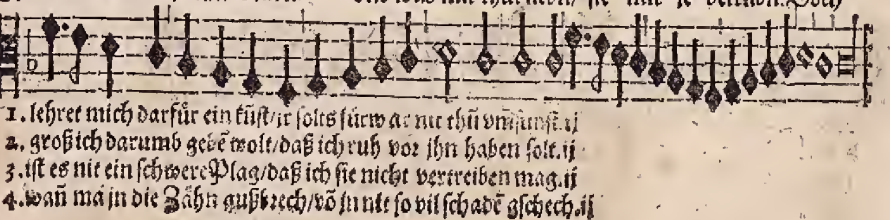 1. lehret mich darfür ein kũst/ir solts fürwar nit thũ vm̃sunst.ij
2. groß ich darumb gebẽ wolt/daß ich ruh vor jhn haben solt.ij
3. ist es nit ein schwere Plag/daß ich sie nicht vertreiben mag.ij
4. wañ mã jn die Zähn außbrech/võ jn nit so vil schadẽ gschech.ij